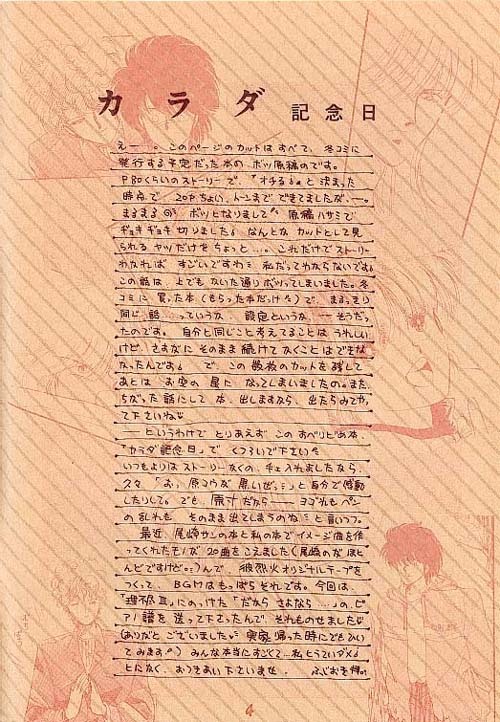 カラダ 記念日
えー。このページのカットは すべて、冬コミに
発行する予定だった本の ボツ原稿のです。
P80くらいのストーリーで、「オチる」と 決まった
時点で 20Pちょい、トーンまで できてましたが、ー。
まるまる ボツとなりまして 原稿 ハサミで
ギョキギョキ 切りました なんとか カットとして見
られる ヤツだけを ちょっと…。これだけで ストーリー
わかれば すごいですわ 私だってわからないです
この話は、上でも かいた通り ボツってしまいました。冬
コミに 買った本(もらった本だっけ)で、まるっきり
同じ話 …っていうか、設定というか、ーーそうだっ
たのです。自分と同じこと考えてることは うれしい
けど、さすがに そのまま 続けてかくことは できませ
なったんです で、この 数枚のカットを 残して
あとは お空の 星に なってしまいましたの。また、
ちがった 話にして 本、出しますなら、出たらみてやっ
て下さいね
ーーというわけで とりあえず この すべりどめ本、
「カラダ記念日」で くつろいで下さい
いつもよりは ストーリーなくの、チェ入れましたなら、
久々 「おっ、原コウが 黒いぜ」と 自分で 感動
したりして。でも、原寸だからーー ヨゴれも ペン
の 乱れも そのまま出てしまうのね と言いつつ。
最近、尾崎サンの本と 私の本で イメージ曲を 作
ってくれたモノが 20曲を こえました(尾崎のが ほと
んどですけど)んで、彼烈火オリジナルテープを
つくって、BGMは もっぱら それです。今回は、
にのっけた「だから さよなら……」の、ピ
アノ譜を 送って下さったんで、それものせました
(ありがと ございました 実家 帰った時にでも ひい
てみます) みんな 本当に すごくて…私とうていダメ
とにかく、おつきあい下さいませ。 ふじおき仲。
4